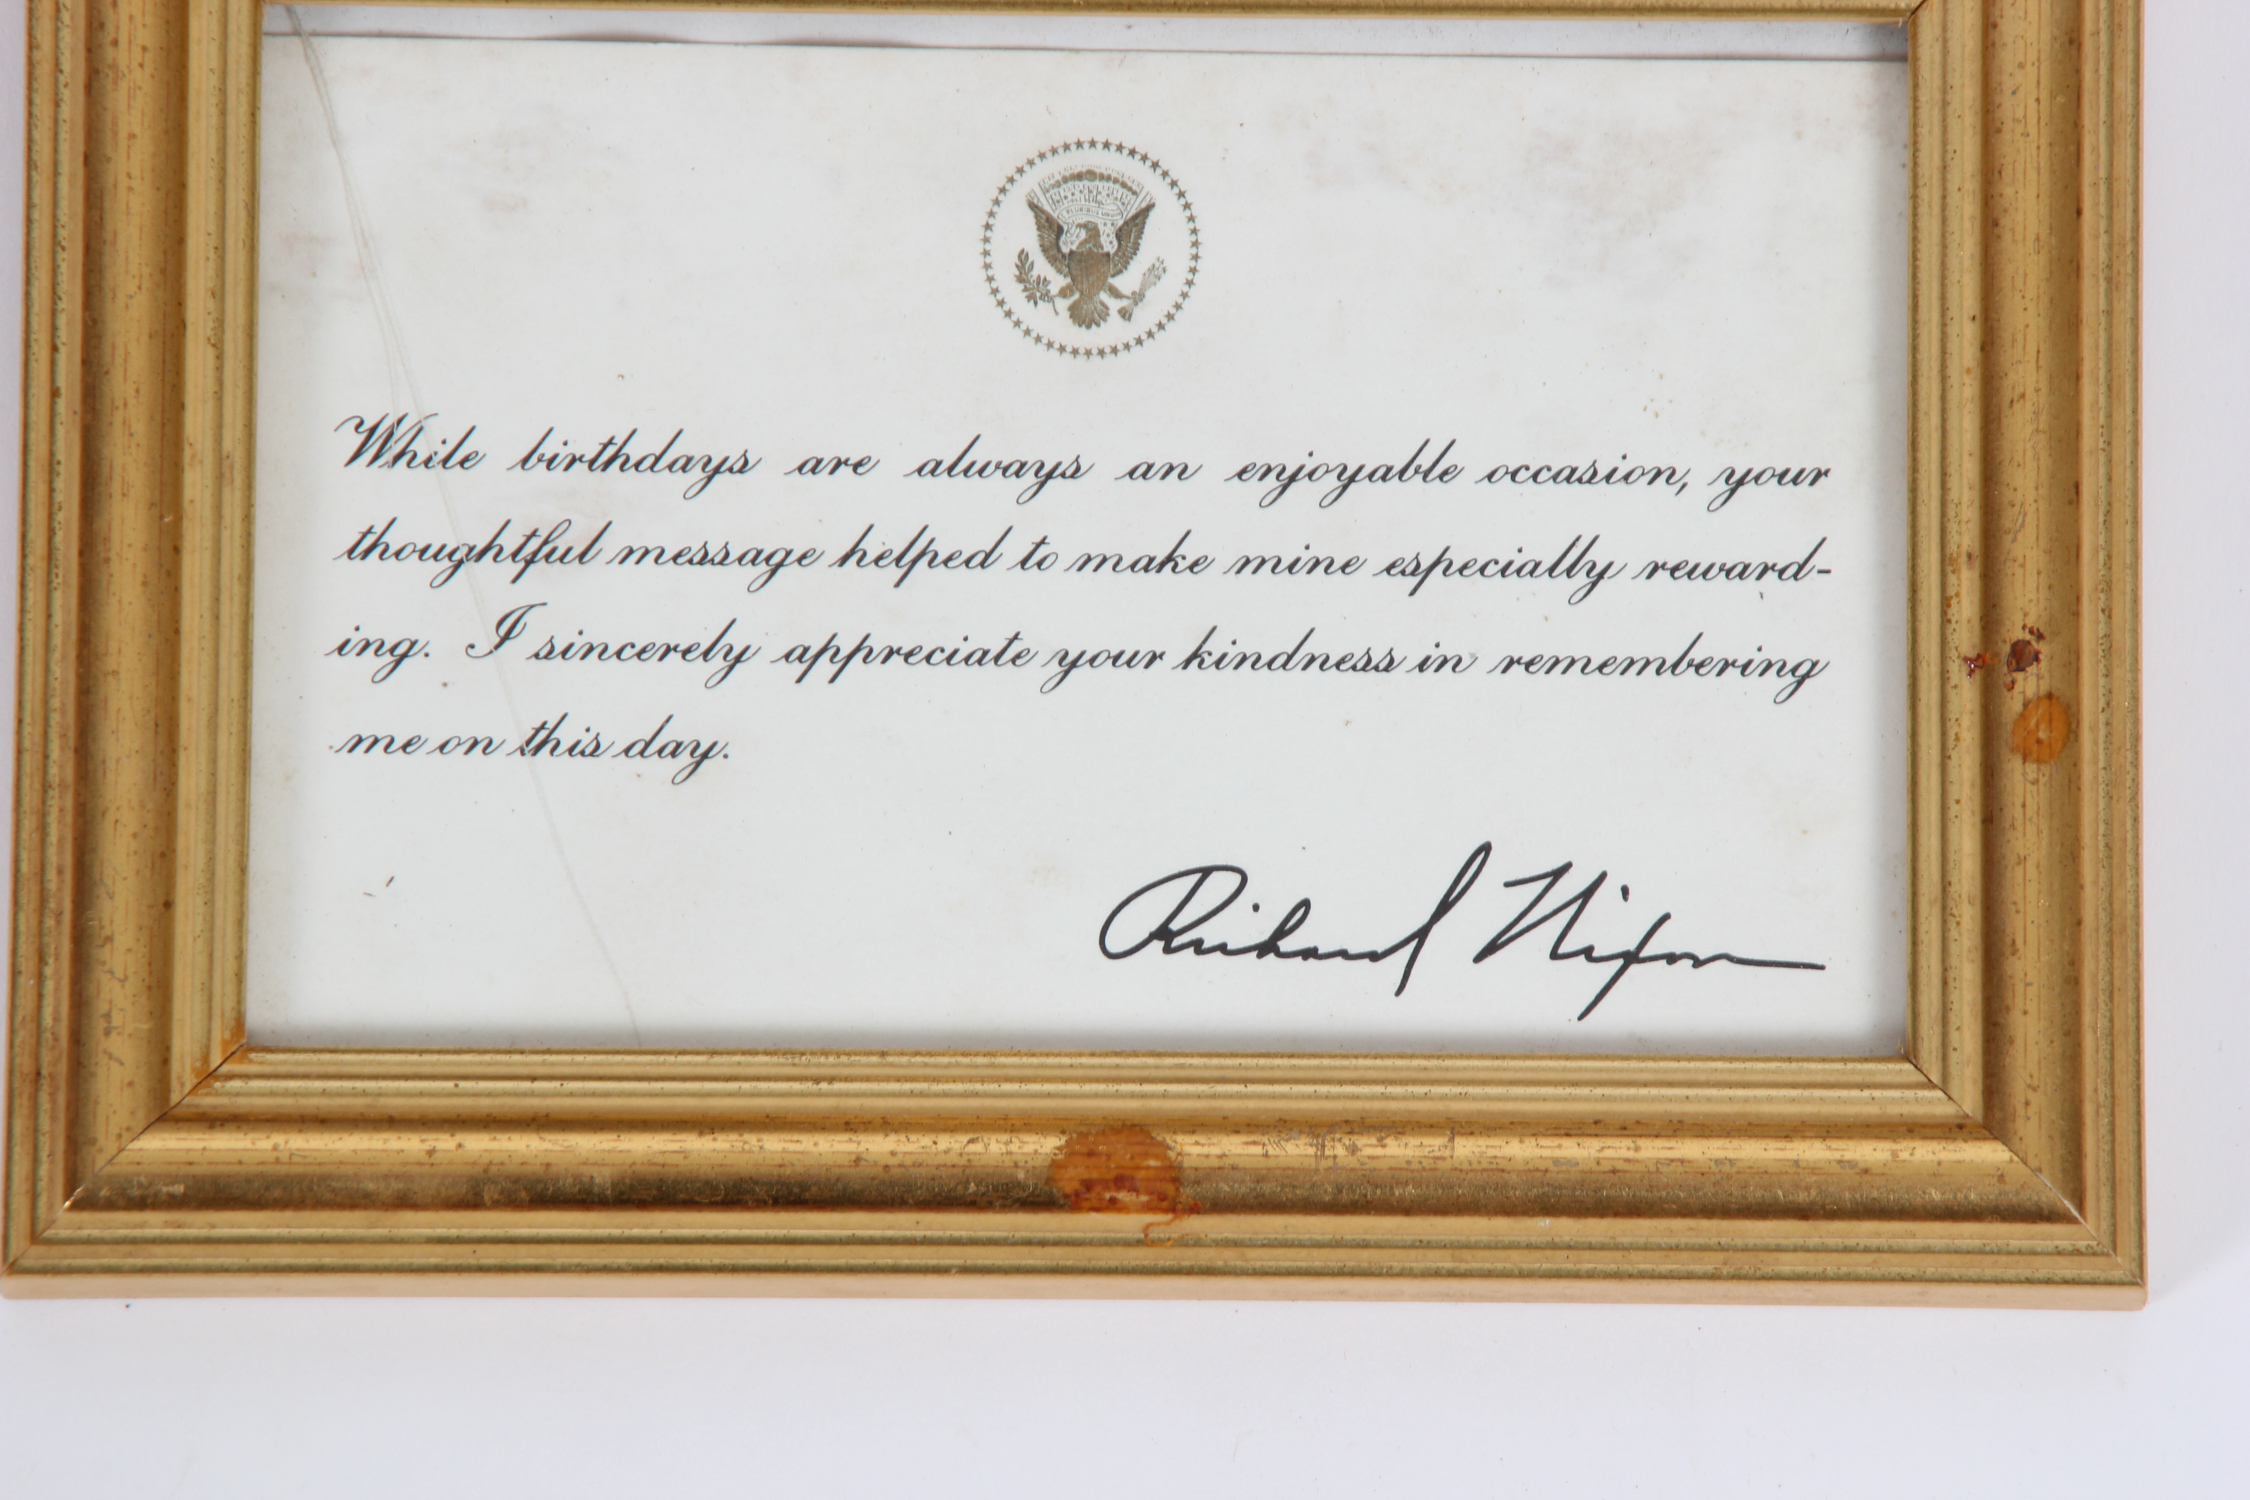 While birthdays are always an enjoyable occasion, your
thoughtful message helped to make mine especially reward-
ing. I sincerely appreciate your kindness in remembering
me on this day.
Richard Nixon